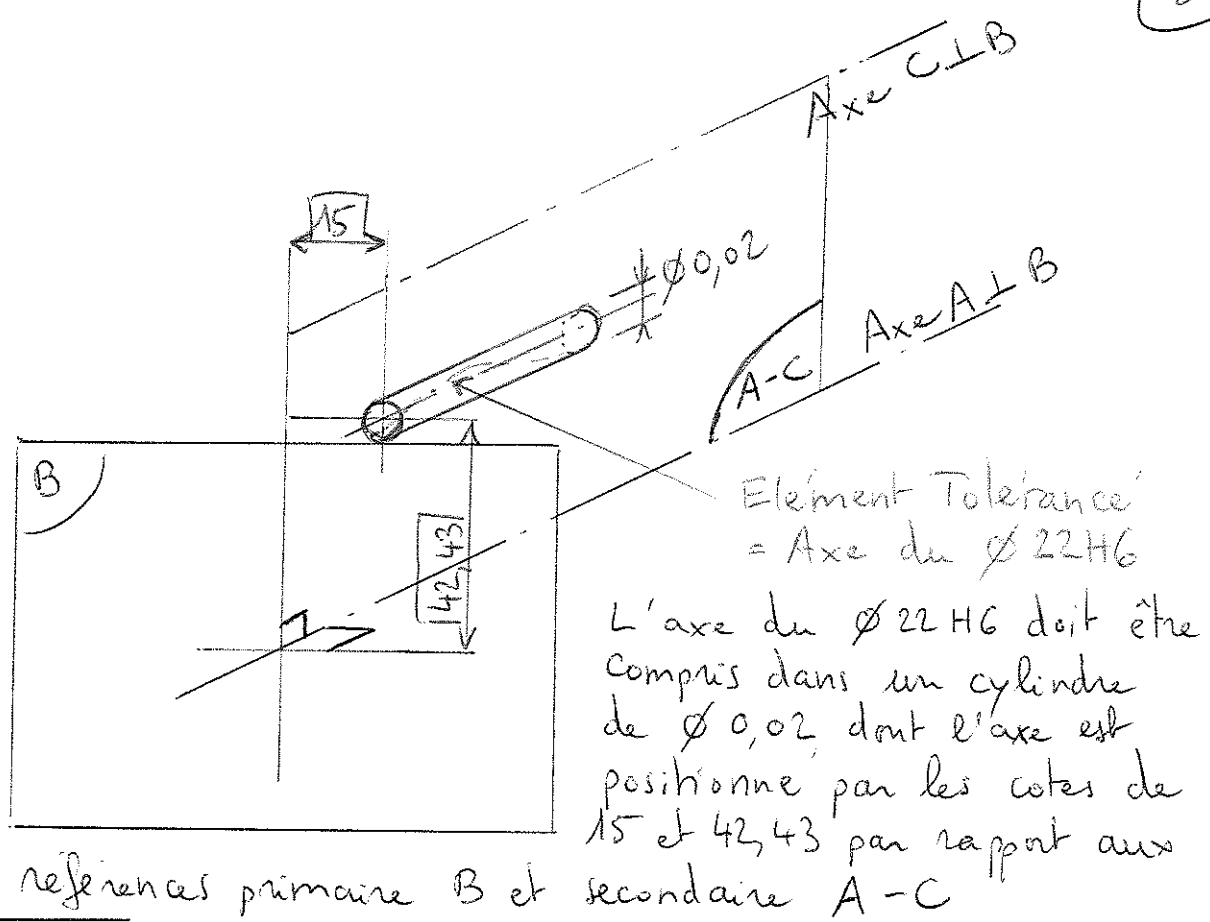 Axe C⊥B
15
Ø0,02
Axe A⊥B
A-C
B
42,43
Elément Tolérancé
= Axe du Ø22H6
L'axe du Ø22H6 doit être
compris dans un cylindre
de Ø0,02 dont l'axe est
positionné par les cotes de
15 et 42,43 par rapport aux
références primaire B et secondaire A-C